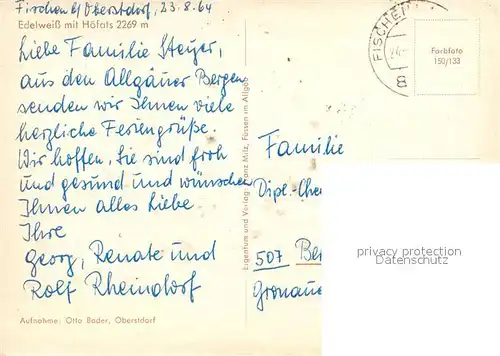 Fischen b/ Oberstdorf, 23.8.64
Edelweiß mit Höfats 2269 m
Liebe Familie Steyer,
aus den Allgäuer Bergen
senden wir Ihnen viele
herzliche Feriengrüße.
Wir hoffen, Sie sind froh
und gesund und wünschen
Ihnen alles Liebe
Ihre
Georg, Renate und
Rolf Rheindorf
Aufnahme: Otto Bader, Oberstdorf
Eigentum und Verlag Franz Milz, Füssen im Allgäu
FISCHEN
8
Farbfoto
150/133
Familie
Dipl.-Che
507 Ber
Gronaue
privacy protection
Datenschutz